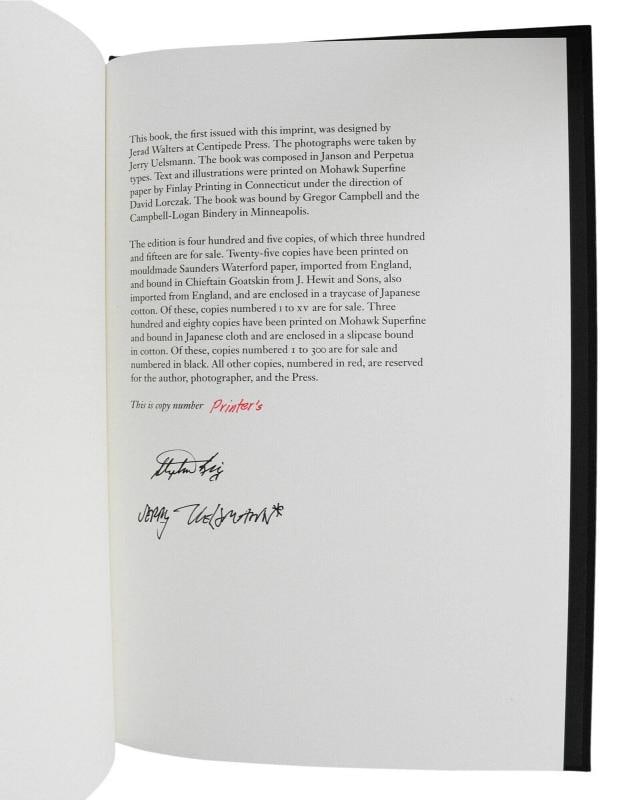 This book, the first issued with this imprint, was designed by
Jerad Walters at Centipede Press. The photographs were taken by
Jerry Uelsmann. The book was composed in Janson and Perpetua
types. Text and illustrations were printed on Mohawk Superfine
paper by Finlay Printing in Connecticut under the direction of
David Lorczak. The book was bound by Gregor Campbell and the
Campbell-Logan Bindery in Minneapolis.
The edition is four hundred and five copies, of which three hundred
and fifteen are for sale. Twenty-five copies have been printed on
mouldmade Saunders Waterford paper, imported from England,
and bound in Chieftain Goatskin from J. Hewit and Sons, also
imported from England, and are enclosed in a traycase of Japanese
cotton. Of these, copies numbered I to XV are for sale. Three
hundred and eighty copies have been printed on Mohawk Superfine
and bound in Japanese cloth and are enclosed in a slipcase bound
in cotton. Of these, copies numbered 1 to 300 are for sale and
numbered in black. All other copies, numbered in red, are reserved
for the author, photographer, and the Press.
This is copy number Printer's
Stephen King
JERRY UELSMANN*